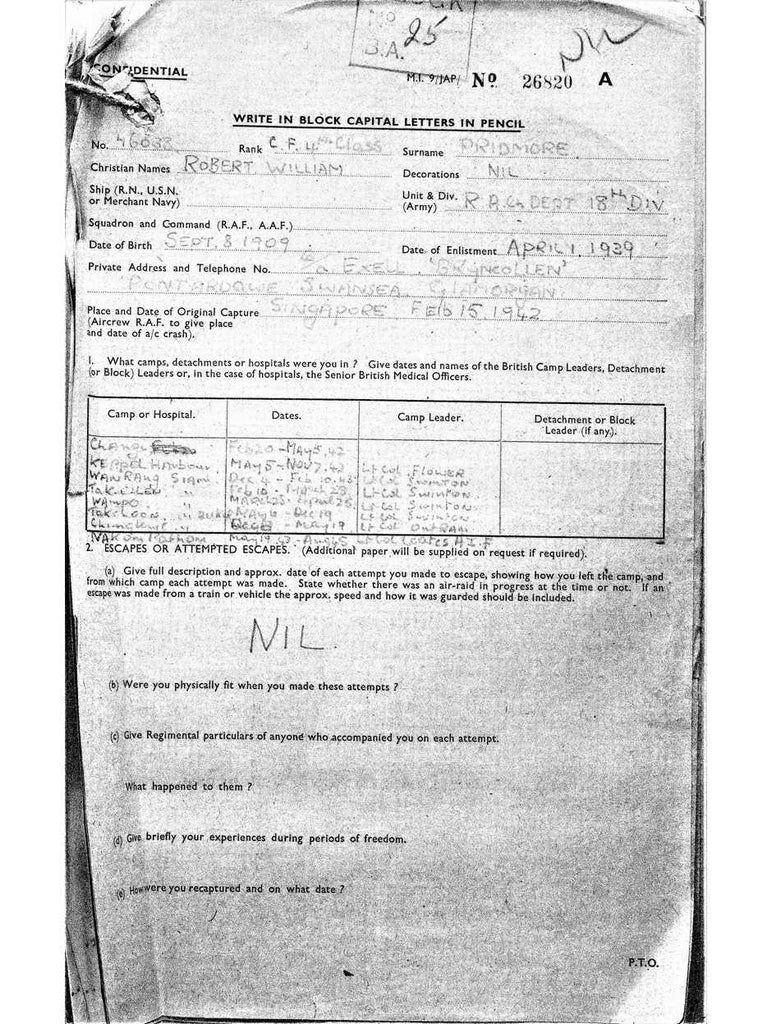 No
B.A. 25
NIL
CONFIDENTIAL
M.I. 9/JAP/ No. 26820 A
WRITE IN BLOCK CAPITAL LETTERS IN PENCIL
No. Rank C.F. 4th Class Surname PRIDMORE
Christian Names ROBERT WILLIAM Decorations NIL
Ship (R.N., U.S.N. or Merchant Navy)
Unit & Div. (Army) R.A.Ch DEPT 18TH DIV
Squadron and Command (R.A.F., A.A.F.)
Date of Birth SEPT. 8 1909 Date of Enlistment APRIL 1, 1939
Private Address and Telephone No. c/o EXELL 'BRYNCOLLEN'
PONTARDAWE SWANSEA GLAMORGAN
Place and Date of Original Capture SINGAPORE FEB 15 1942
(Aircrew R.A.F. to give place
and date of a/c crash).
1. What camps, detachments or hospitals were you in ? Give dates and names of the British Camp Leaders, Detachment
(or Block) Leaders or, in the case of hospitals, the Senior British Medical Officers.
Camp or Hospital. Dates. Camp Leader. Detachment or Block
Leader (if any).
CHANGI Feb 20 - May 5, 42
KEPPEL HARBOUR MAY 5 - NOV 7. 42 Lt Col FLOWER
WANRANG SIAM Dec 4 - Feb 10. 43 Lt Col SWINTON
TAKILEN " Feb 10 - Lt Col SWINTON
WAMPO " MARCH 25 - Lt Col SWINTON
" May 6 - Dec 19 Lt Col SWINTON
" - May 19 Lt Col OUTRAM
NAKOM PATHOM May 19 - Aug 45 Lt Col Coates A.I.F
2. ESCAPES OR ATTEMPTED ESCAPES. (Additional paper will be supplied on request if required).
(a) Give full description and approx. date of each attempt you made to escape, showing how you left the camp, and
from which camp each attempt was made. State whether there was an air-raid in progress at the time or not. If an
escape was made from a train or vehicle the approx. speed and how it was guarded should be included.
NIL.
(b) Were you physically fit when you made these attempts ?
(c) Give Regimental particulars of anyone who accompanied you on each attempt.
What happened to them ?
(d) Give briefly your experiences during periods of freedom.
(e) How were you recaptured and on what date ?
P.T.O.